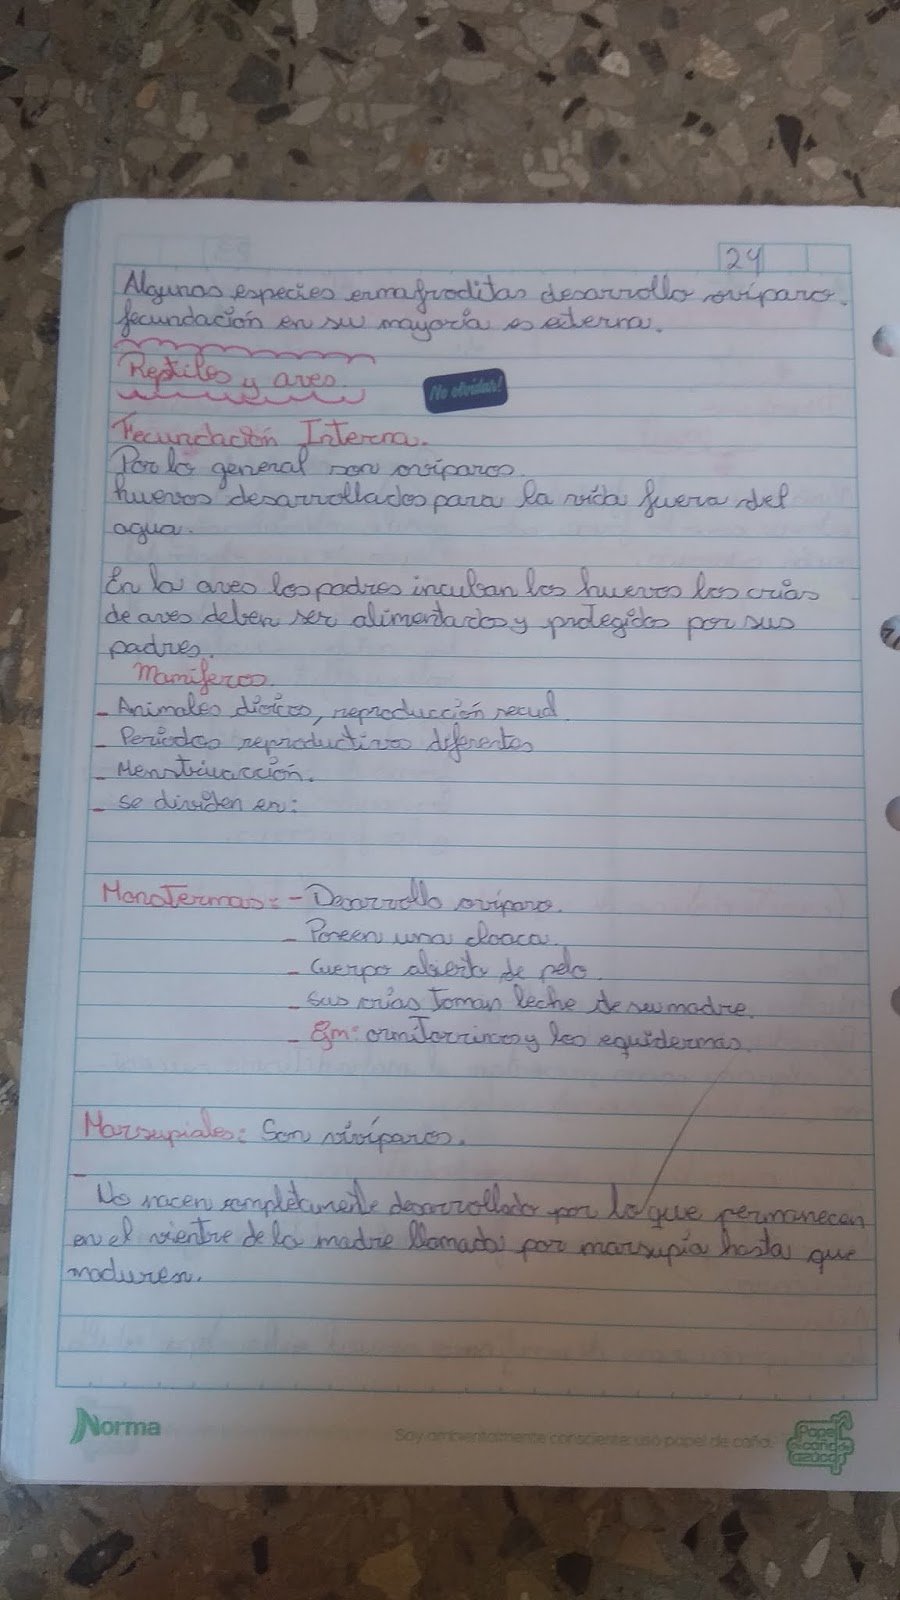 24
Algunas especies ermafroditas desarrollo oviparo.
fecundación en su mayoría es externa.
Reptiles y aves.
No olvidar!
Fecundación Interna.
Por lo general son oviparos.
huevos desarrollados para la vida fuera del
agua.
En la aves los padres incuban los huevos los crias
de aves deben ser alimentados y protegidos por sus
padres.
Mamiferos.
- Animales dioicos, reproducción sexual.
- Periodos reproductivos diferentes
- Menstruacción.
- se dividen en:
Monotermas: - Desarrollo oviparo.
- Poseen una cloaca.
- Cuerpo abierto de pelo.
- sus crías toman leche de su madre.
- Ejm: ornitorrincos y los equidermas.
Marsupiales: Son vivíparos.
-
No nacen completamente desarrollado por lo que permanecen
en el vientre de la madre llamada por marsupia hasta que
maduren.
Norma
Soy ambientalmente consciente: uso papel de caña.
Papel
de caña de
azúcar